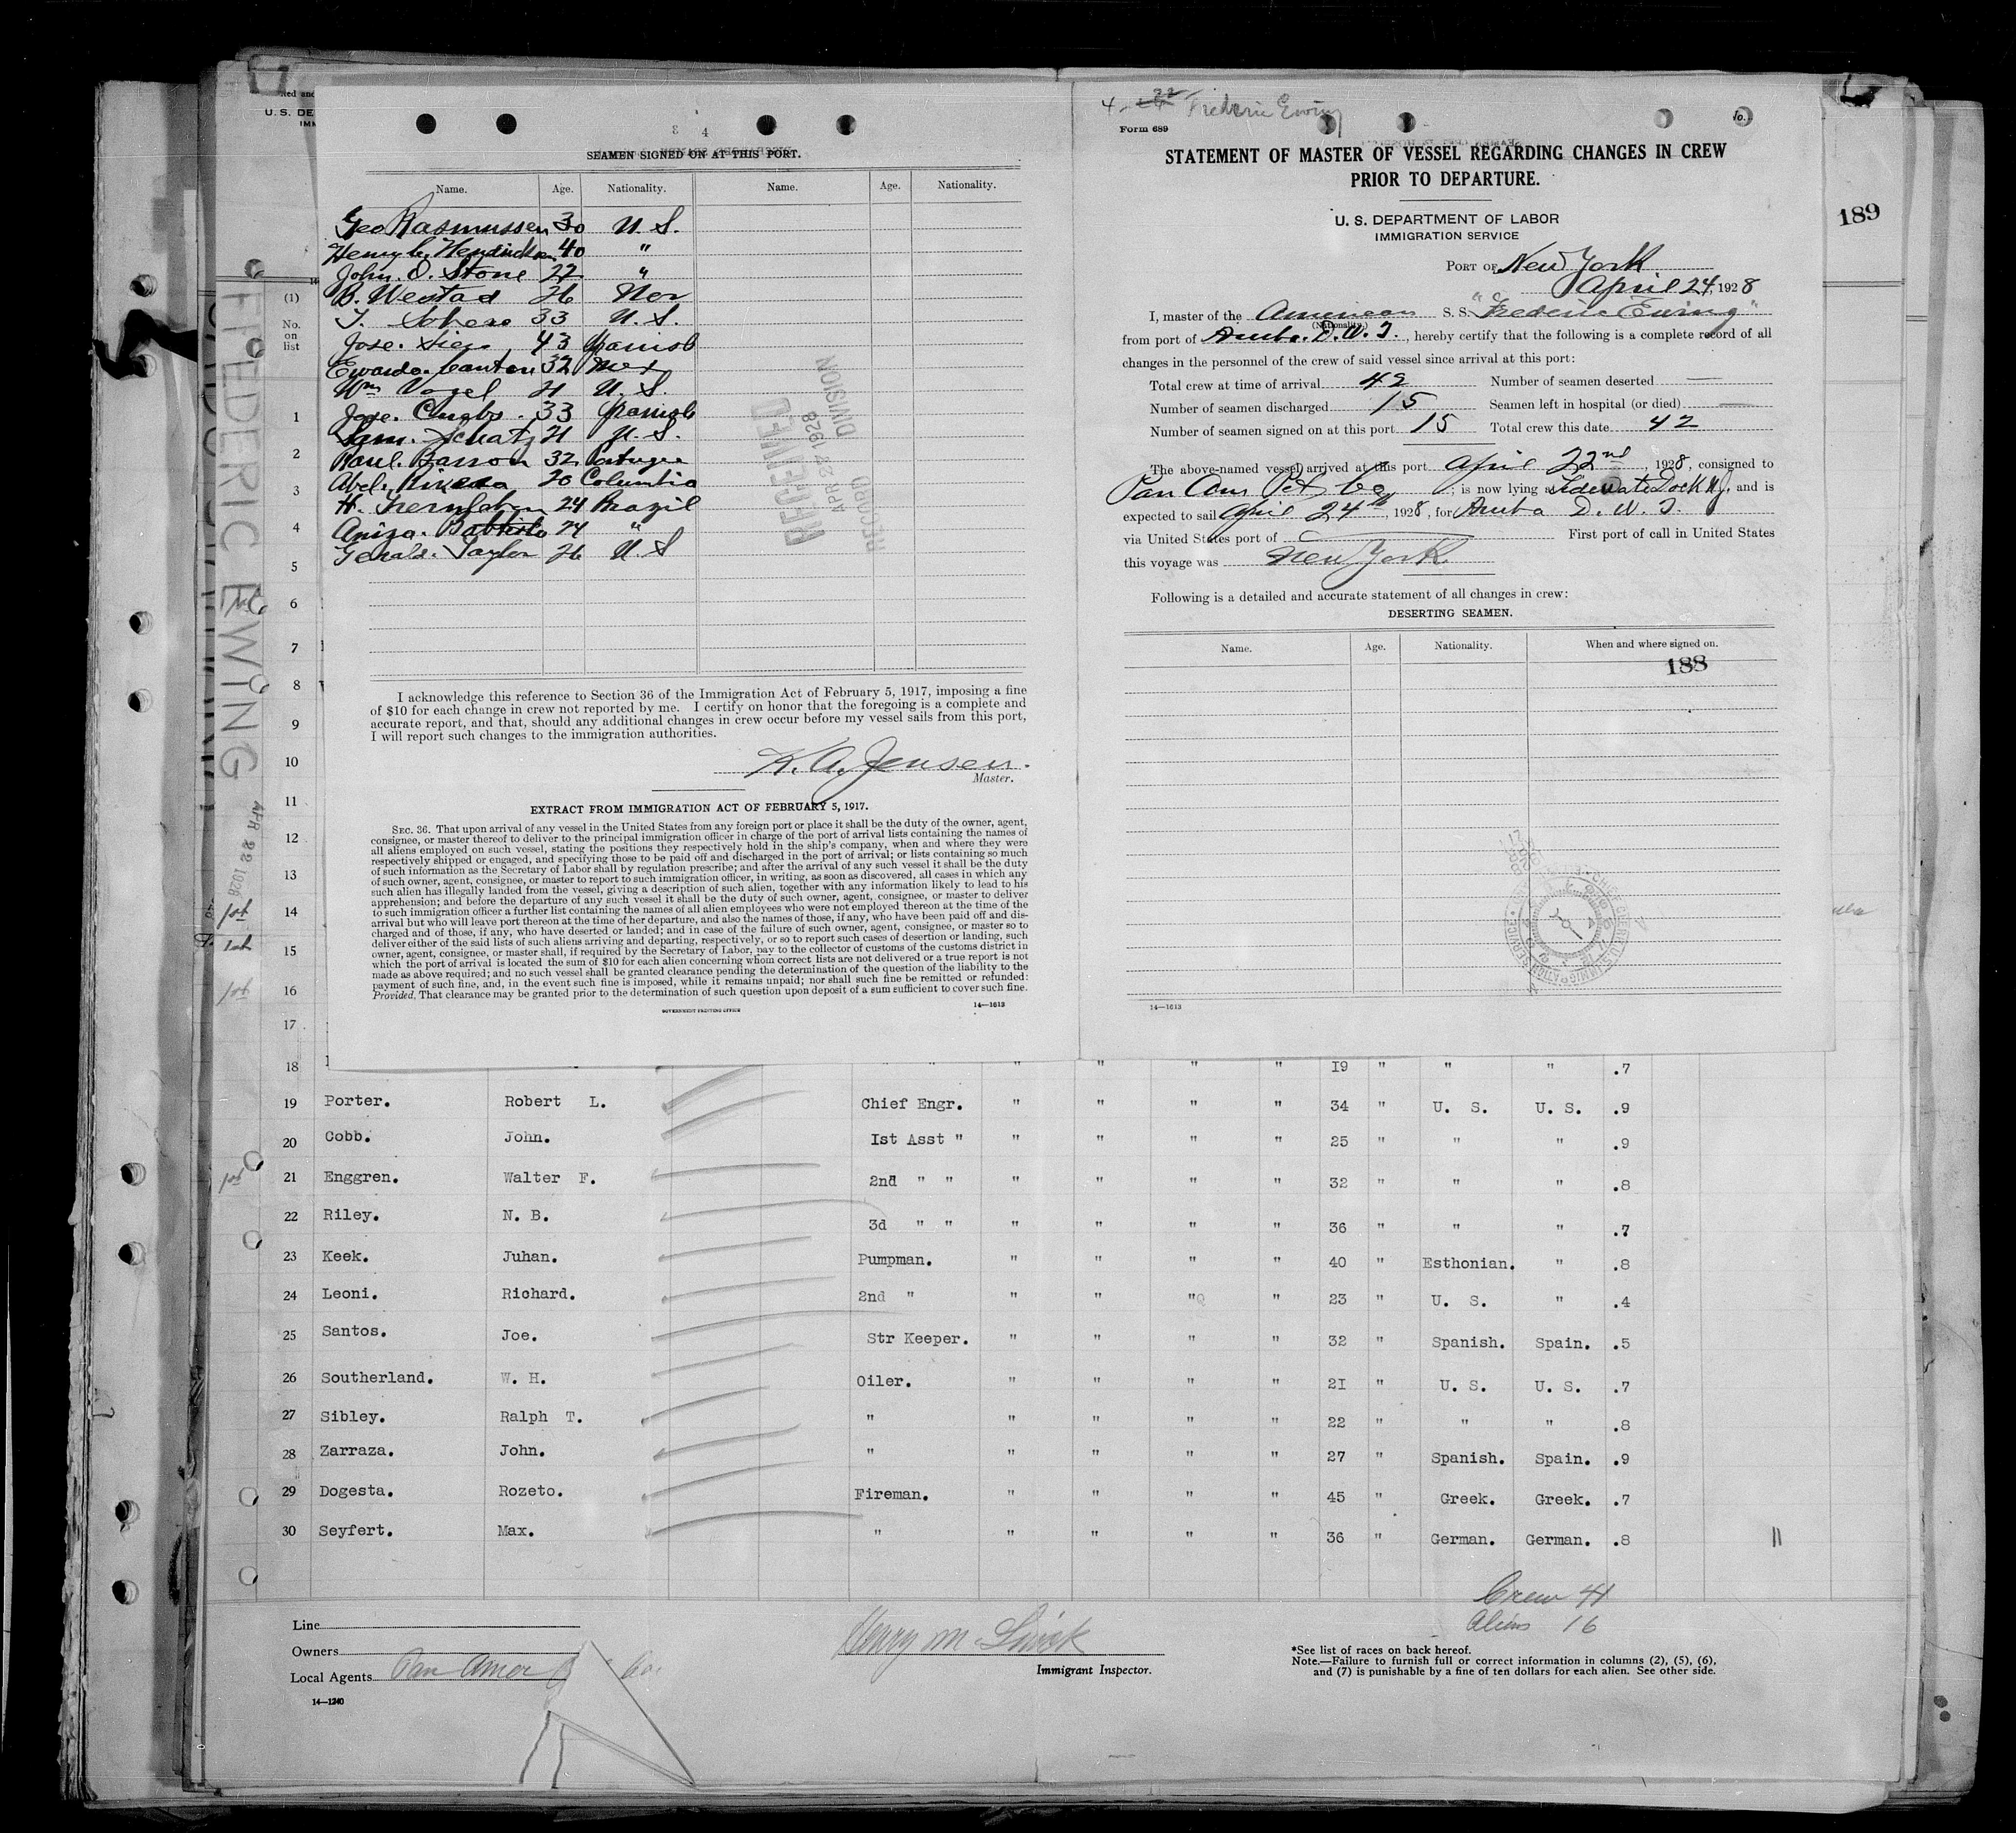 SEAMEN SIGNED ON AT THIS PORT.
Name. Age. Nationality. Name. Age. Nationality.
Geo Rasmussen 30 U.S.
Henry C. Hendricksen 40 "
John. O. Stone 22 "
B. Westad 26 Nor
T. 33 U.S.
Jose. 43 Spanish
Ewardo. Canton 32 Mex
Wm Vogel 21 U.S.
Jose. 33 Spanish
Sam. Schatz 21 U.S.
Raul. Barron 32
Abel. Rivera 20 Columbia
H. 24 Brazil
Baptisto 24 "
Gerald. Taylor 26 U.S
RECEIVED
APR 22 1928
RECORD DIVISION
I acknowledge this reference to Section 36 of the Immigration Act of February 5, 1917, imposing a fine
of $10 for each change in crew not reported by me. I certify on honor that the foregoing is a complete and
accurate report, and that, should any additional changes in crew occur before my vessel sails from this port,
I will report such changes to the immigration authorities.
K. A. Jensen.
Master.
EXTRACT FROM IMMIGRATION ACT OF FEBRUARY 5, 1917.
SEC. 36. That upon arrival of any vessel in the United States from any foreign port or place it shall be the duty of the owner, agent,
consignee, or master thereof to deliver to the principal immigration officer in charge of the port of arrival lists containing the names of
all aliens employed on such vessel, stating the positions they respectively hold in the ship's company, when and where they were
respectively shipped or engaged, and specifying those to be paid off and discharged in the port of arrival; or lists containing so much
of such information as the Secretary of Labor shall by regulation prescribe; and after the arrival of any such vessel it shall be the duty
of such owner, agent, consignee, or master to report to such immigration officer, in writing, as soon as discovered, all cases in which any
such alien has illegally landed from the vessel, giving a description of such alien, together with any information likely to lead to his
apprehension; and before the departure of any such vessel it shall be the duty of such owner, agent, consignee, or master to deliver
to such immigration officer a further list containing the names of all alien employees who were not employed thereon at the time of the
arrival but who will leave port thereon at the time of her departure, and also the names of those, if any, who have been paid off and dis-
charged and of those, if any, who have deserted or landed; and in case of the failure of such owner, agent, consignee, or master so to
deliver either of the said lists of such aliens arriving and departing, respectively, or so to report such cases of desertion or landing, such
owner, agent, consignee, or master shall, if required by the Secretary of Labor, pay to the collector of customs of the customs district in
which the port of arrival is located the sum of $10 for each alien concerning whom correct lists are not delivered or a true report is not
made as above required; and no such vessel shall be granted clearance pending the determination of the question of the liability to the
payment of such fine, and, in the event such fine is imposed, while it remains unpaid; nor shall such fine be remitted or refunded:
Provided, That clearance may be granted prior to the determination of such question upon deposit of a sum sufficient to cover such fine.
GOVERNMENT PRINTING OFFICE 14—1613
Frederic Ewing
Form 689
STATEMENT OF MASTER OF VESSEL REGARDING CHANGES IN CREW
PRIOR TO DEPARTURE.
U. S. DEPARTMENT OF LABOR
IMMIGRATION SERVICE
189
PORT OF New York
April 24, 1928
I, master of the American S. S. "Frederic Ewing"
(Nationality.)
from port of Aruba. D.W.I., hereby certify that the following is a complete record of all
changes in the personnel of the crew of said vessel since arrival at this port:
Total crew at time of arrival 42 Number of seamen deserted —
Number of seamen discharged 15 Seamen left in hospital (or died) —
Number of seamen signed on at this port 15 Total crew this date 42
The above-named vessel arrived at this port April 22nd, 1928, consigned to
Pan Am Pet Co; is now lying at Tidewater Dock NJ, and is
expected to sail April 24th, 1928, for Aruba D.W.I.
via United States port of First port of call in United States
this voyage was New York
Following is a detailed and accurate statement of all changes in crew:
DESERTING SEAMEN.
Name. Age. Nationality. When and where signed on.
188
14—1613
FREDERIC EWING
APR 22 1928
(1)
No.
on
list
1
2
3
4
5
6
7
8
9
10
11
12
13
14
15
16
17
18 " " " " 19 " " " .7
19 Porter. Robert L. Chief Engr. " " " " 34 " U. S. U. S. .9
20 Cobb. John. 1st Asst " " " " " 25 " " " .9
21 Enggren. Walter F. 2nd " " " " " " 32 " " " .8
22 Riley. N. B. 3d " " " " " " 36 " " " .7
23 Keek. Juhan. Pumpman. " " " " 40 " Esthonian. " .8
24 Leoni. Richard. 2nd " " " " " 23 " U. S. " .4
25 Santos. Joe. Str Keeper. " " " " 32 " Spanish. Spain. .5
26 Southerland. W. H. Oiler. " " " " 21 " U. S. U. S. .7
27 Sibley. Ralph T. " " " " " 22 " " " .8
28 Zarraza. John. " " " " " 27 " Spanish. Spain. .9
29 Dogesta. Rozeto. Fireman. " " " " 45 " Greek. Greek. .7
30 Seyfert. Max. " " " " " 36 " German. German. .8
Crew 41
Aliens 16
Line
Owners
Local Agents Pan Amer
14—1240
Immigrant Inspector.
*See list of races on back hereof.
Note.—Failure to furnish full or correct information in columns (2), (5), (6),
and (7) is punishable by a fine of ten dollars for each alien. See other side.